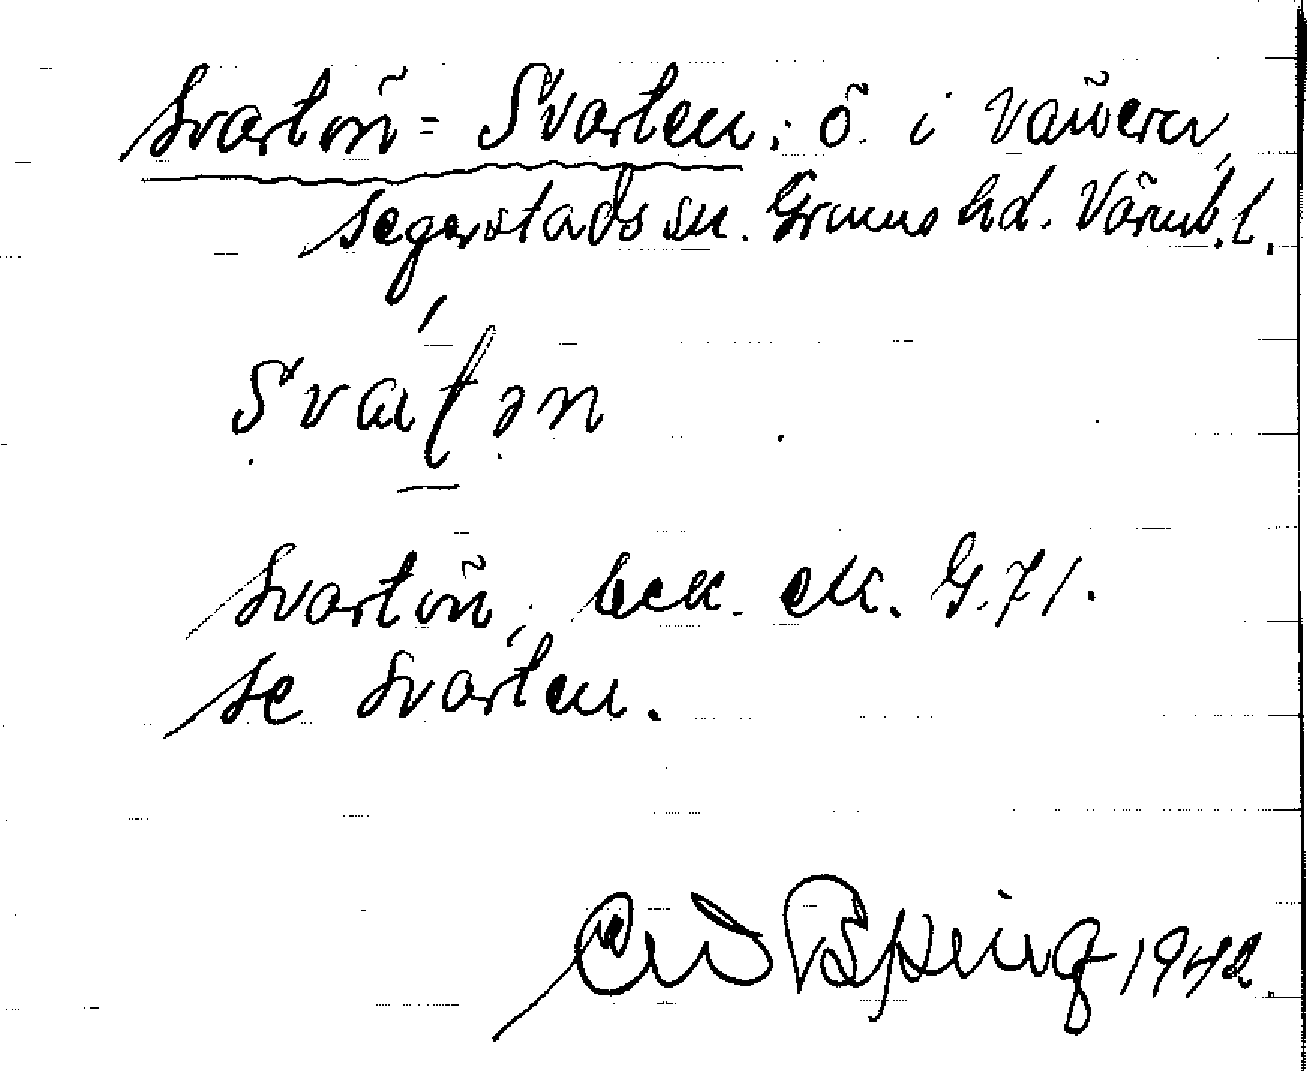 Svartön = Svarten; ö i Vänern,
Segerstads sn. Grums hd. Värml. l.
Svatən
Svartön, bck. ek. G. 71.
se Svarten.
1942